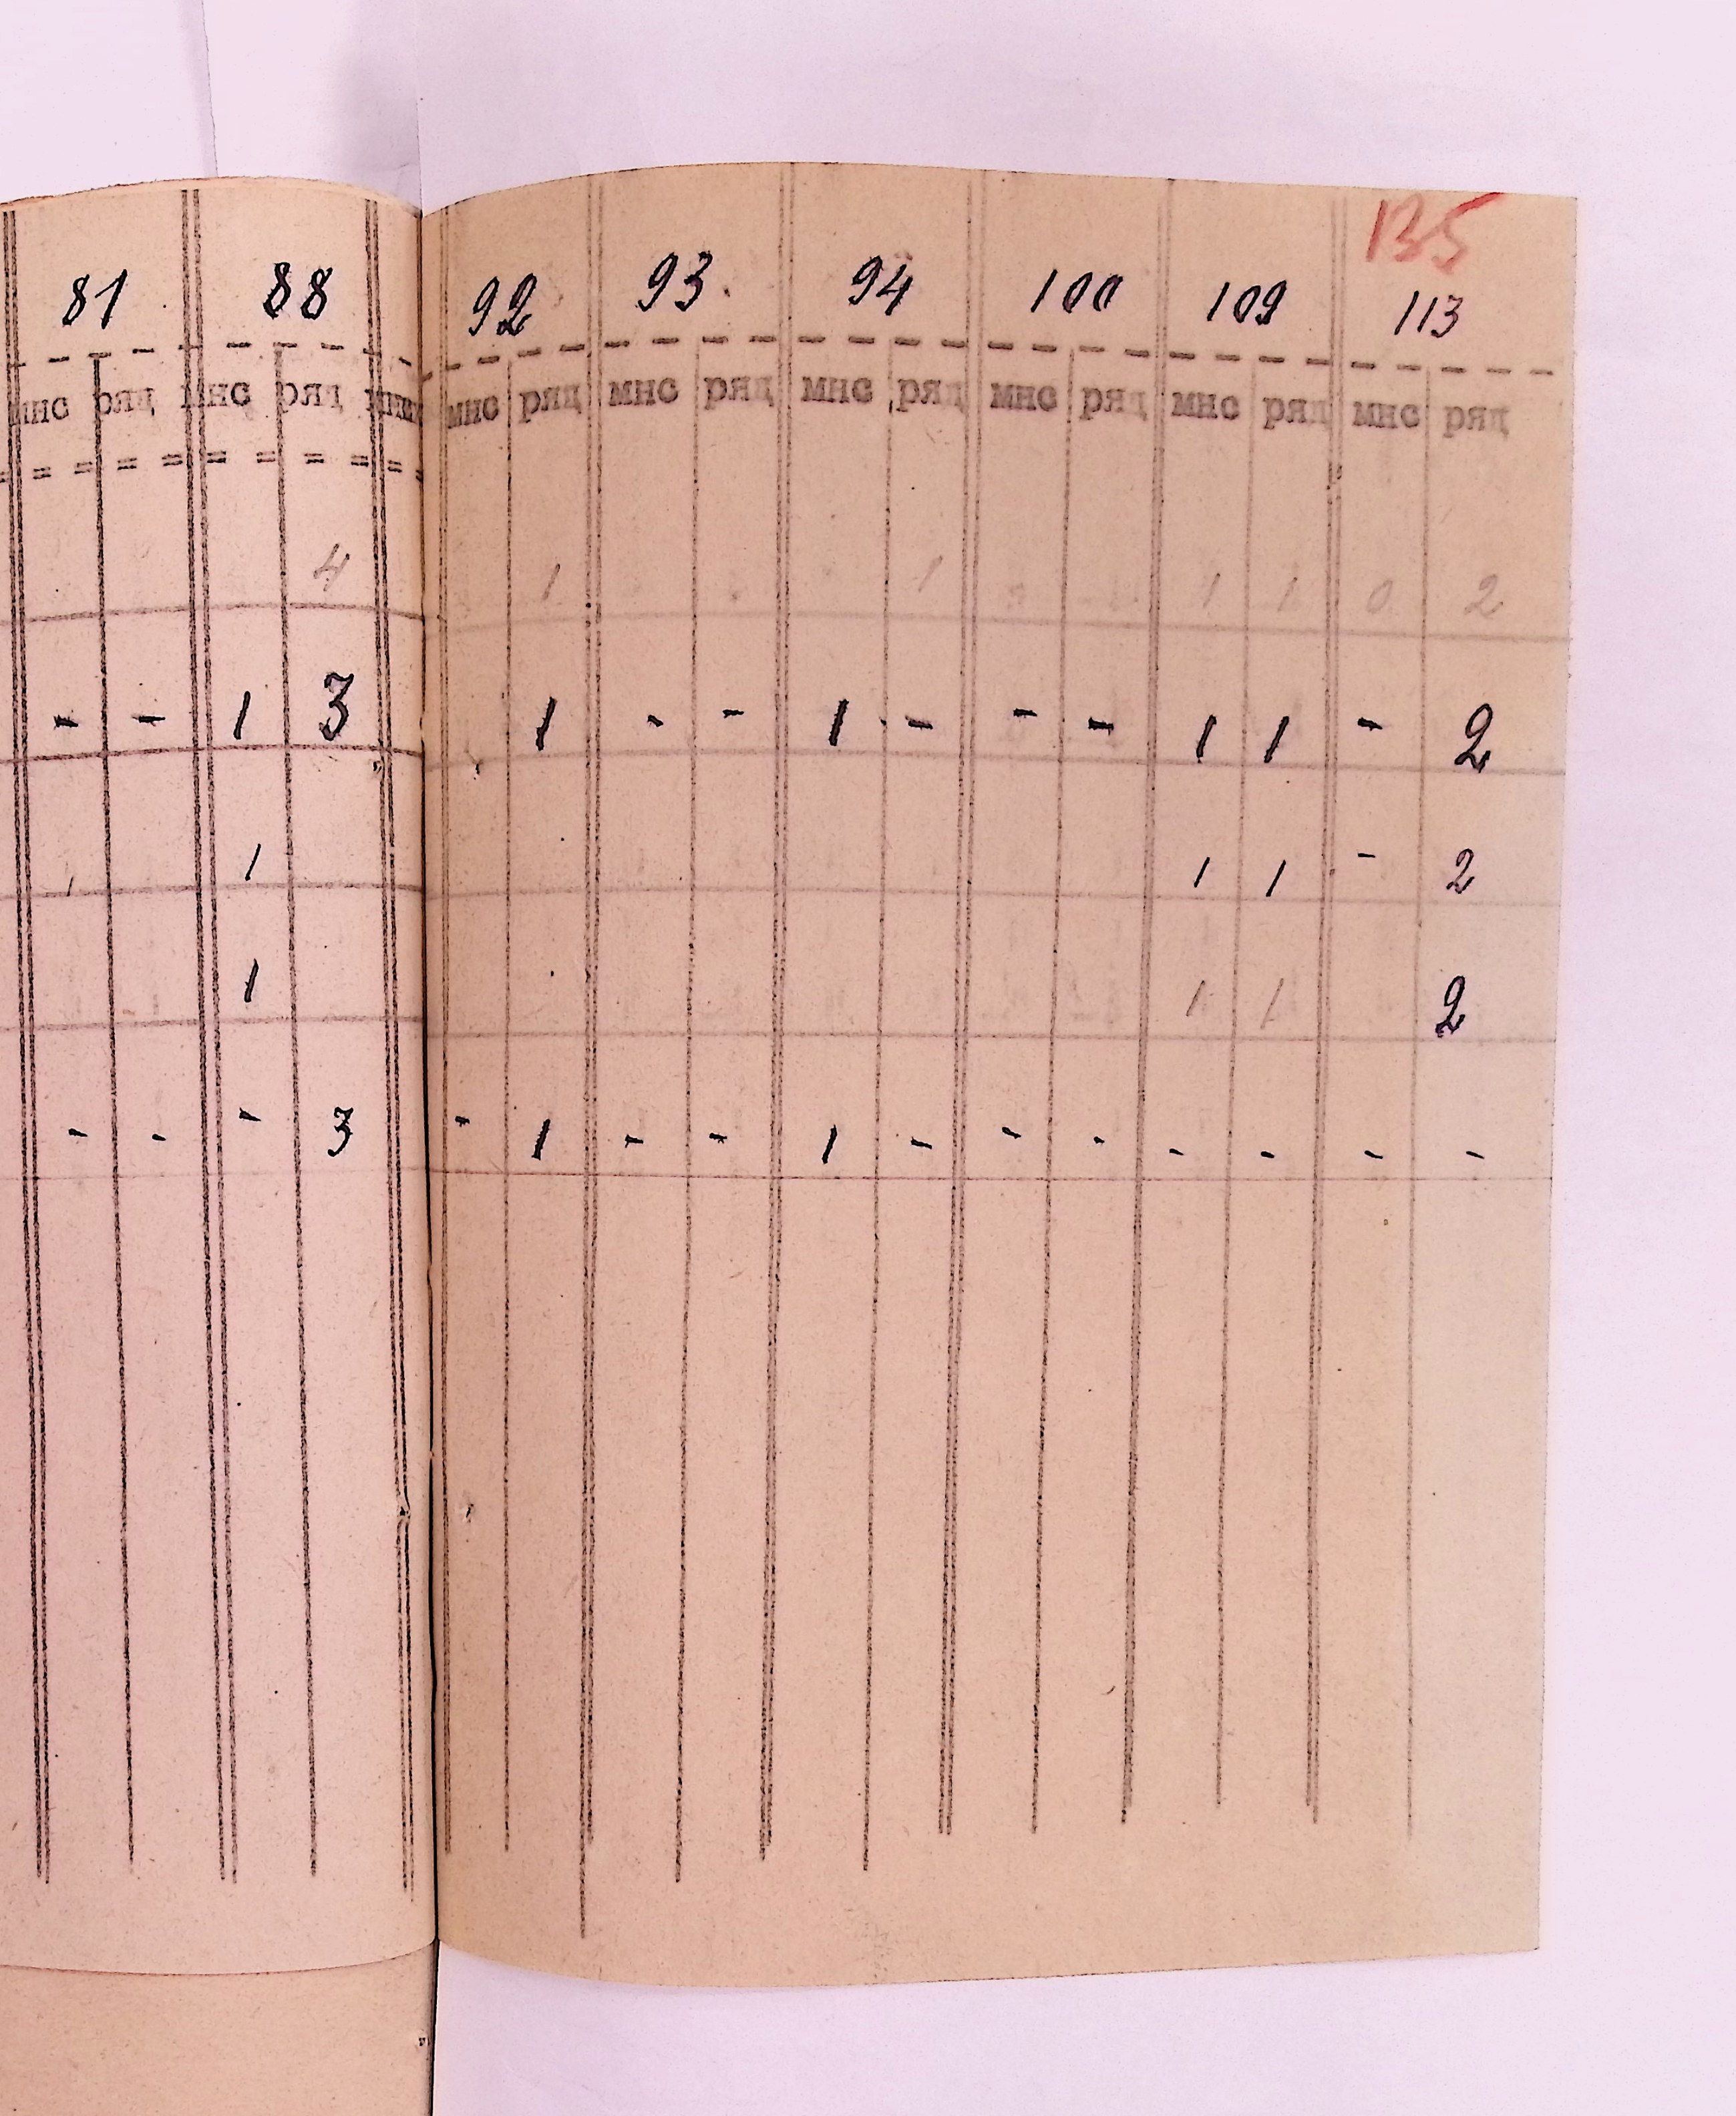 135
81 88 92 93 94 100 109 113
мнс ряд мнс ряд мнс ряд мнс ряд мнс ряд мнс ряд мнс ряд мнс ряд
4 1 1 1 1 0 2
- - 1 3 1 - - 1 - - - 1 1 - 2
1 1 1 - 2
1 1 1 2
- - - 3 - 1 - - 1 - - - - - - -